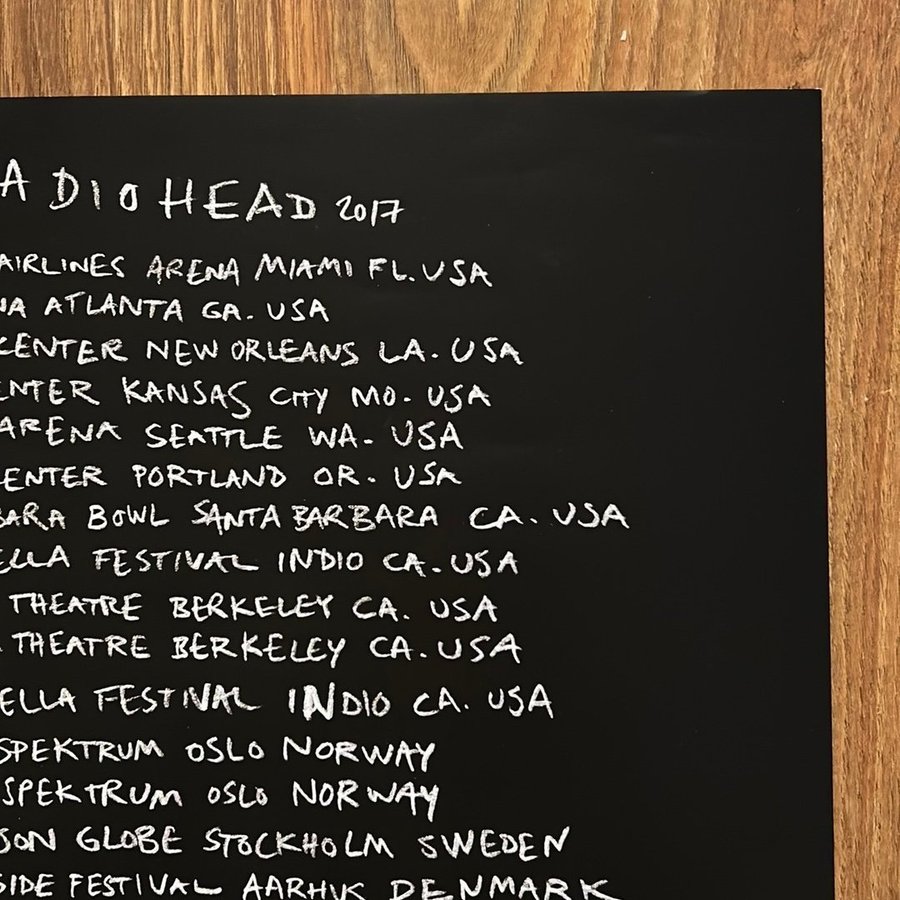 ADIOHEAD 2017
AIRLINES ARENA MIAMI FL. USA
NA ATLANTA GA. USA
CENTER NEW ORLEANS LA. USA
ENTER KANSAS CITY MO. USA
ARENA SEATTLE WA. USA
ENTER PORTLAND OR. USA
BARA BOWL SANTA BARBARA CA. USA
ELLA FESTIVAL INDIO CA. USA
THEATRE BERKELEY CA. USA
THEATRE BERKELEY CA. USA
ELLA FESTIVAL INDIO CA. USA
SPEKTRUM OSLO NORWAY
SPEKTRUM OSLO NORWAY
SON GLOBE STOCKHOLM SWEDEN
SIDE FESTIVAL AARHUS DENMARK